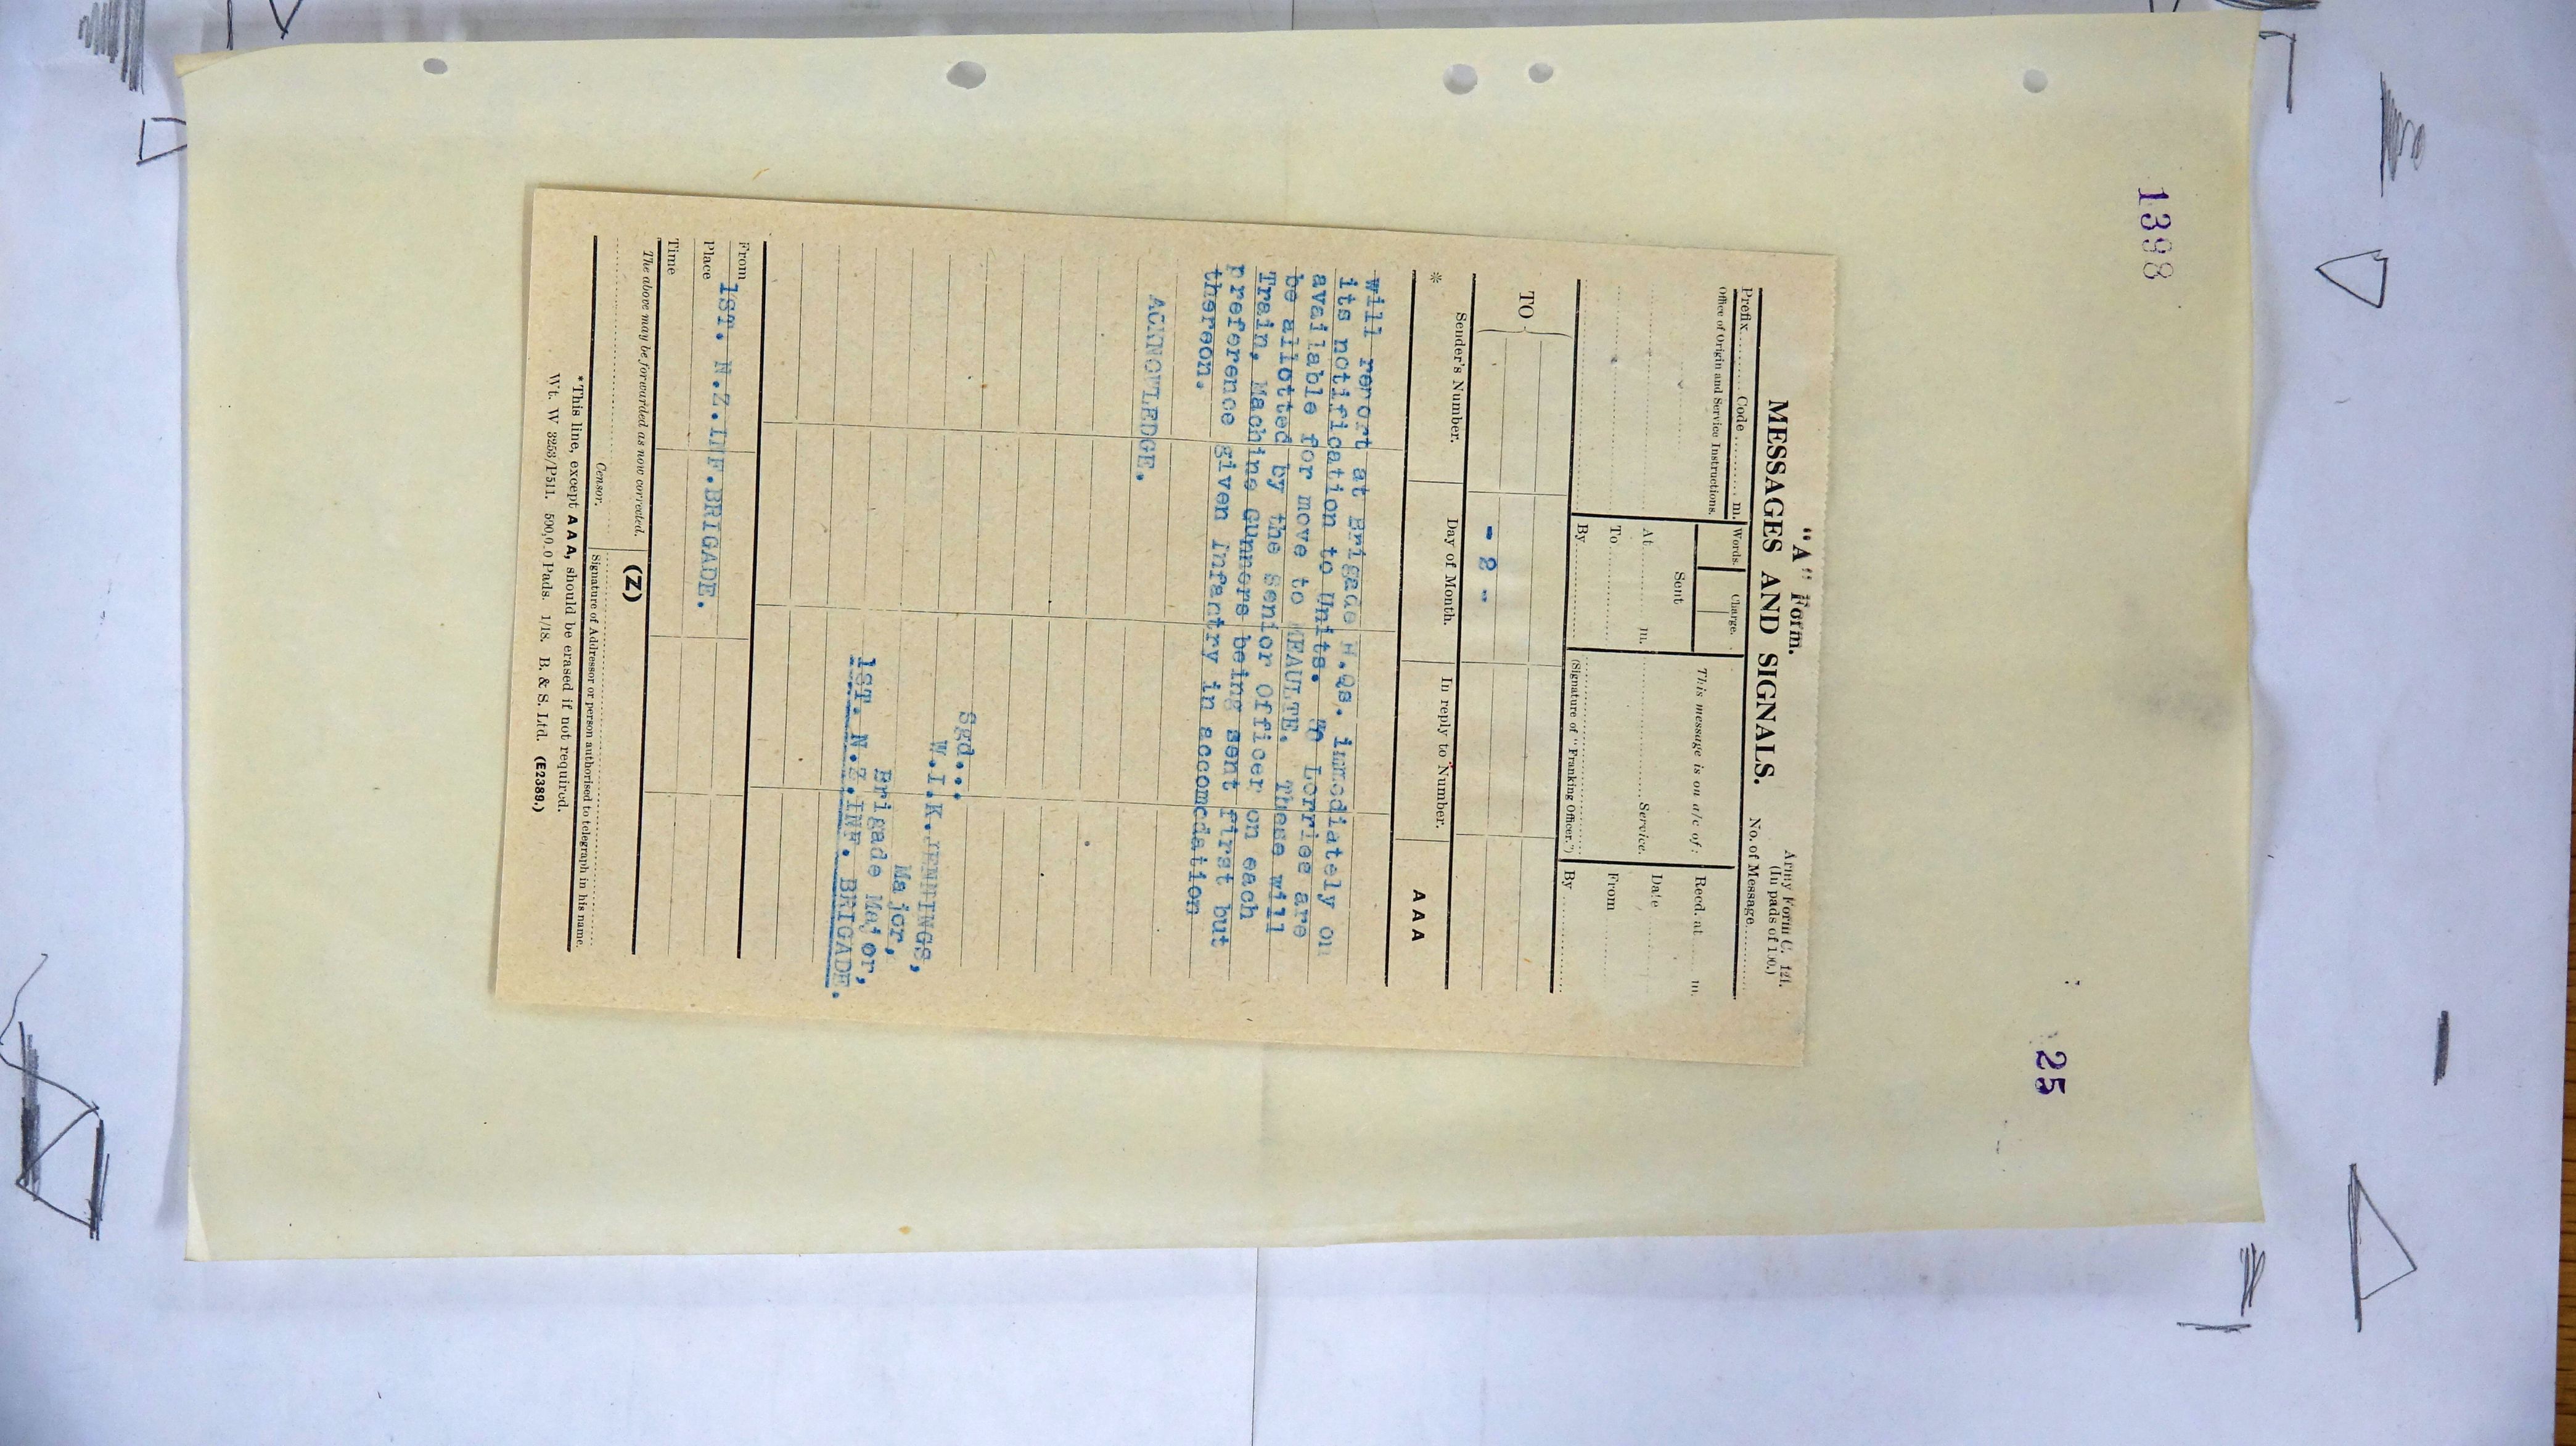 1398
25
"A" Form.
Army Form C. 121.
MESSAGES AND SIGNALS.
(In pads of 100.)
No. of Message
Prefix Code m.
Words.
Charge.
This message is on a/c of:
Recd. at m.
Office of Origin and Service Instructions.
Sent
At m.
Service.
Date
To
From
By
(Signature of "Franking Officer.")
By
TO
- 2 -
Sender's Number.
Day of Month.
In reply to Number.
A A A
*
will report at Brigade H.Qs. immediately on
its notification to Units. Lorries are
available for move to MEAULTE. These will
be allotted by the Senior Officer on each
Train, Machine Gunners being sent first but
preference given Infantry in accomodation
thereon.
ACKNOWLEDGE.
Sgd...
W.I.K.JENNINGS,
Major,
Brigade Major,
1ST. N.Z.INF. BRIGADE.
From 1ST. N.Z.INF.BRIGADE.
Place
Time
The above may be forwarded as now corrected.
(Z)
Censor.
Signature of Addressor or person authorised to telegraph in his name.
*This line, except A A A, should be erased if not required.
Wt. W 3253/P511. 500,000 Pads. 1/18. B. & S. Ltd. (E2389.)